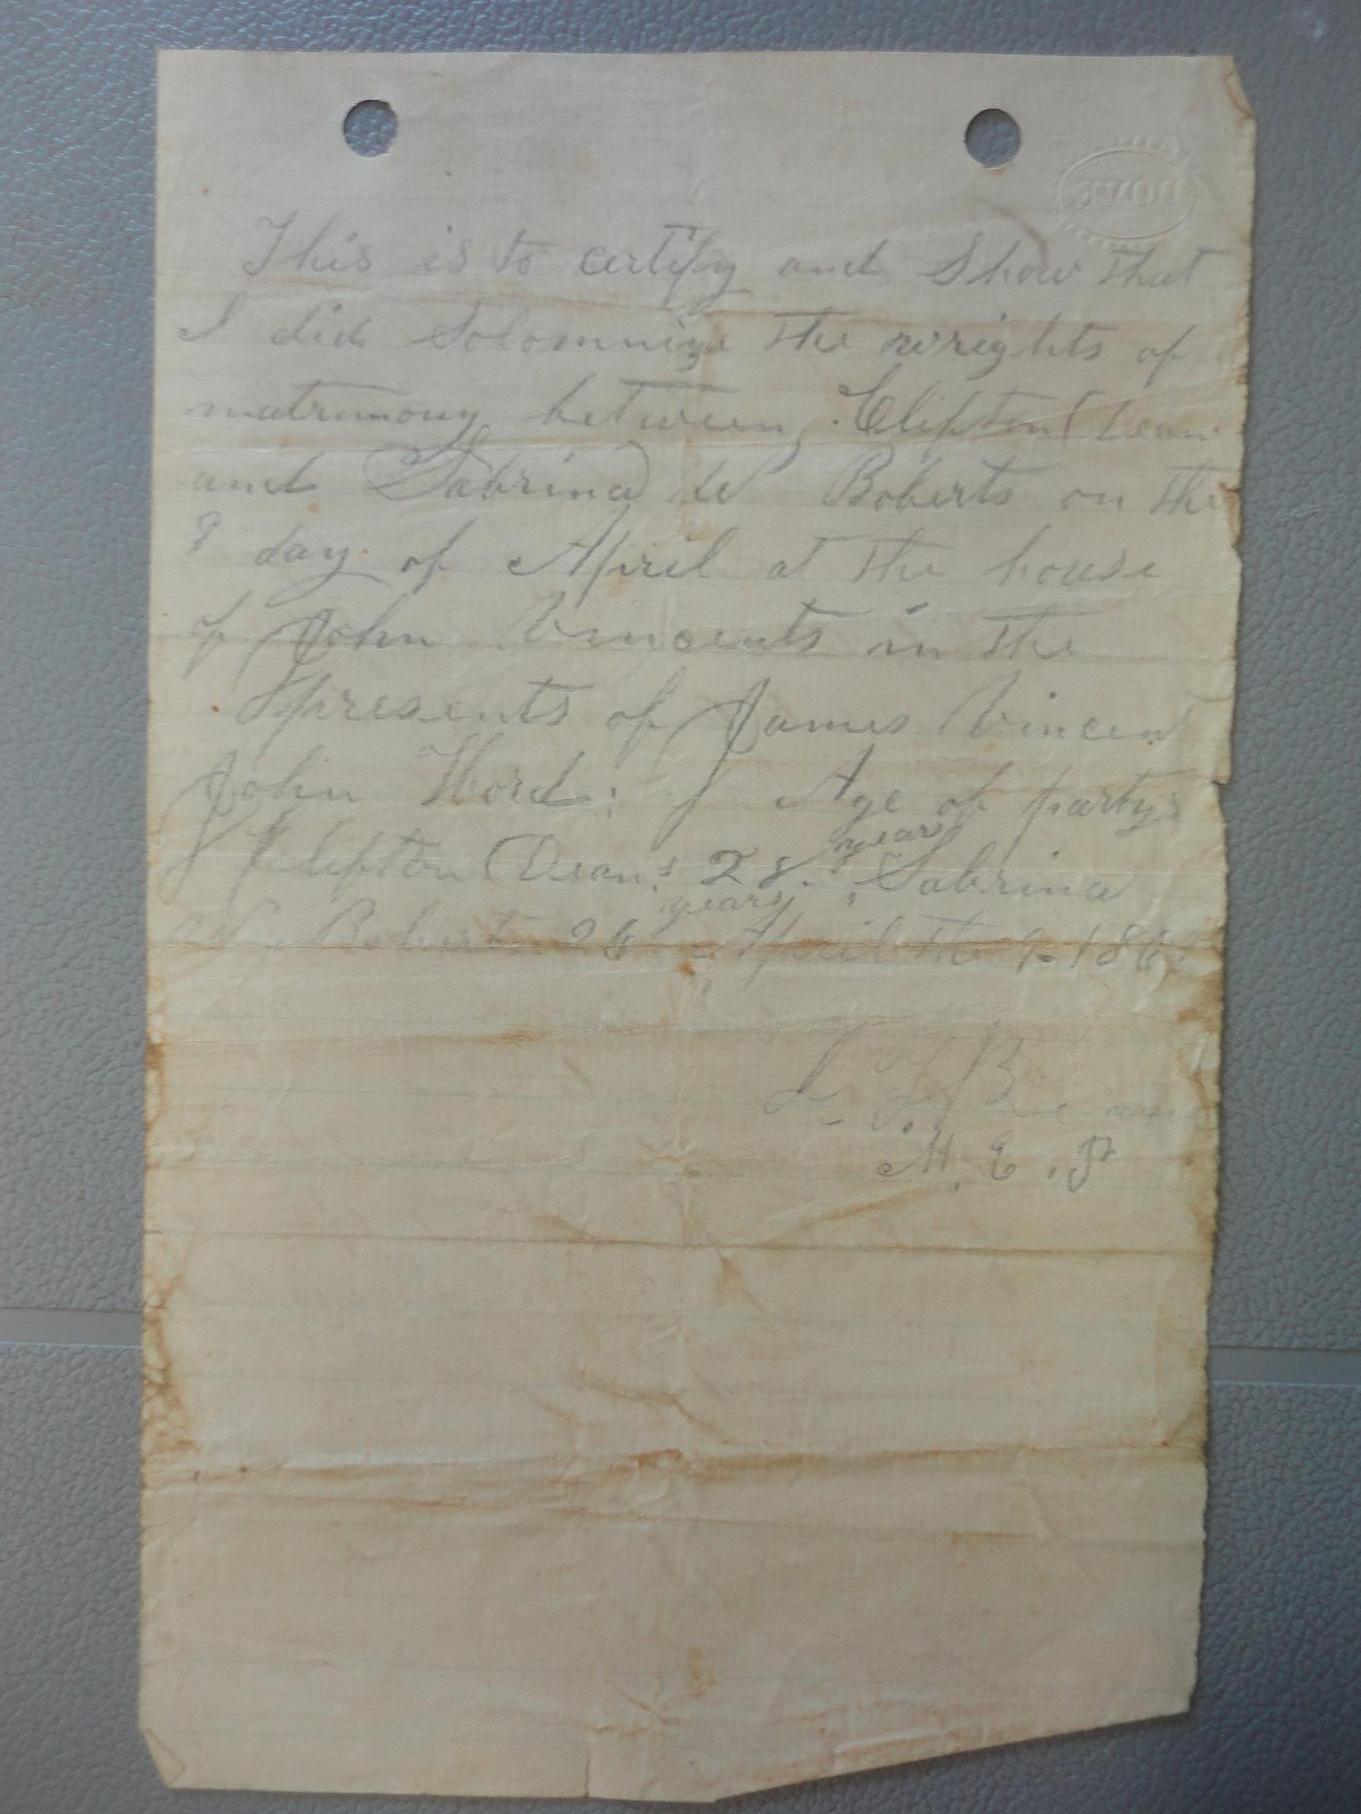 This is to certify and Show that
I did Solomnize the wrights of
matrimony between Clifton Dean
and Sabrina W Roberts on the
9 day of April at the house
of John Vincents in the
presents of James Vincent
John Word: Age of partys
Clifton Dean 28 years Sabrina
Roberts 28 years April the 9 186
L. F.
M. E. P